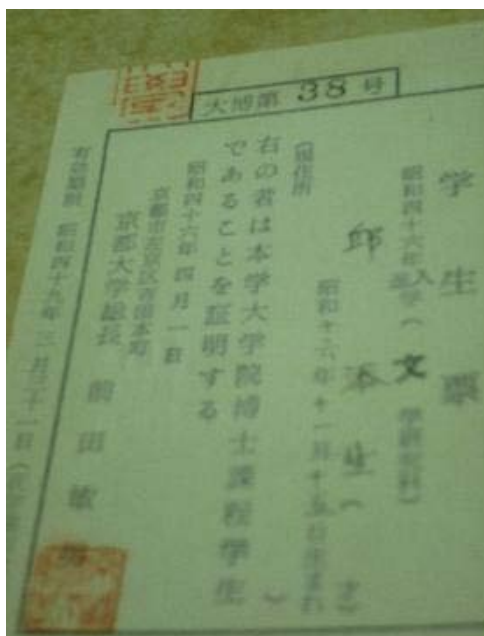 大博第 38 号
学生票
昭和四十六年 入学 (文 学研究科)
邱
昭和十六年十一月十五日生
(現住所 )
右の者は本学大学院博士課程学生
であることを証明する
昭和四十六年 四月 一日
京都市左京区吉田本町
京都大学総長 前田敏男
有効期限 昭和四十九年 三月三十一日